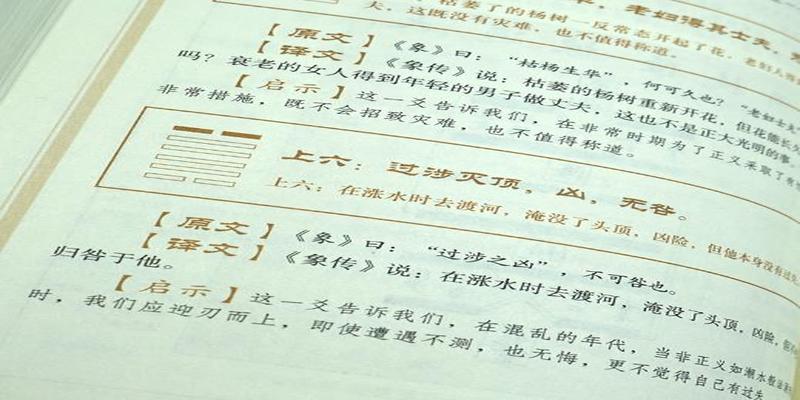 枯萎了的杨树一反常态开起了花，老妇得其士夫，
夫，这既没有灾难，也不值得称道。
【原文】《象》曰：“枯杨生华”，何可久也？“老妇士夫”
【译文】《象传》说：枯萎的杨树重新开花，但花能长久
吗？衰老的女人得到年轻的男子做丈夫，这也不是正大光明的事。
【启示】这一爻告诉我们，在非常时期为了正义采取了
非常措施，既不会招致灾难，也不值得称道。
上六：过涉灭顶，凶，无咎。
上六：在涨水时去渡河，淹没了头顶，凶险，但他本身没有过失
【原文】《象》曰：“过涉之凶”，不可咎也。
【译文】《象传》说：在涨水时去渡河，淹没了头顶，凶险，
归咎于他。
【启示】这一爻告诉我们，在混乱的年代，当非正义如潮水般
时，我们应迎刃而上，即使遭遇不测，也无悔，更不觉得自己有过失